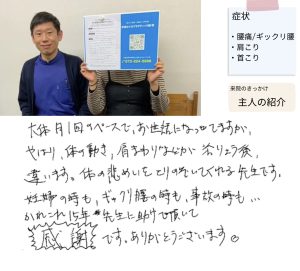 症状
・腰痛/ギックリ腰
・肩こり
・首こり
来院のきっかけ
主人の紹介
大体月1回のペースで、お世話になってますが、
やはり、体の動き、肩まわりなどが治りょう後、
違います。体の悲めいをとりのぞいてくれる先生です。
妊婦の時も、ギックリ腰の時も、事故の時も…
かれこれ15年 先生に助けて頂いて
感謝です。ありがとうございます。